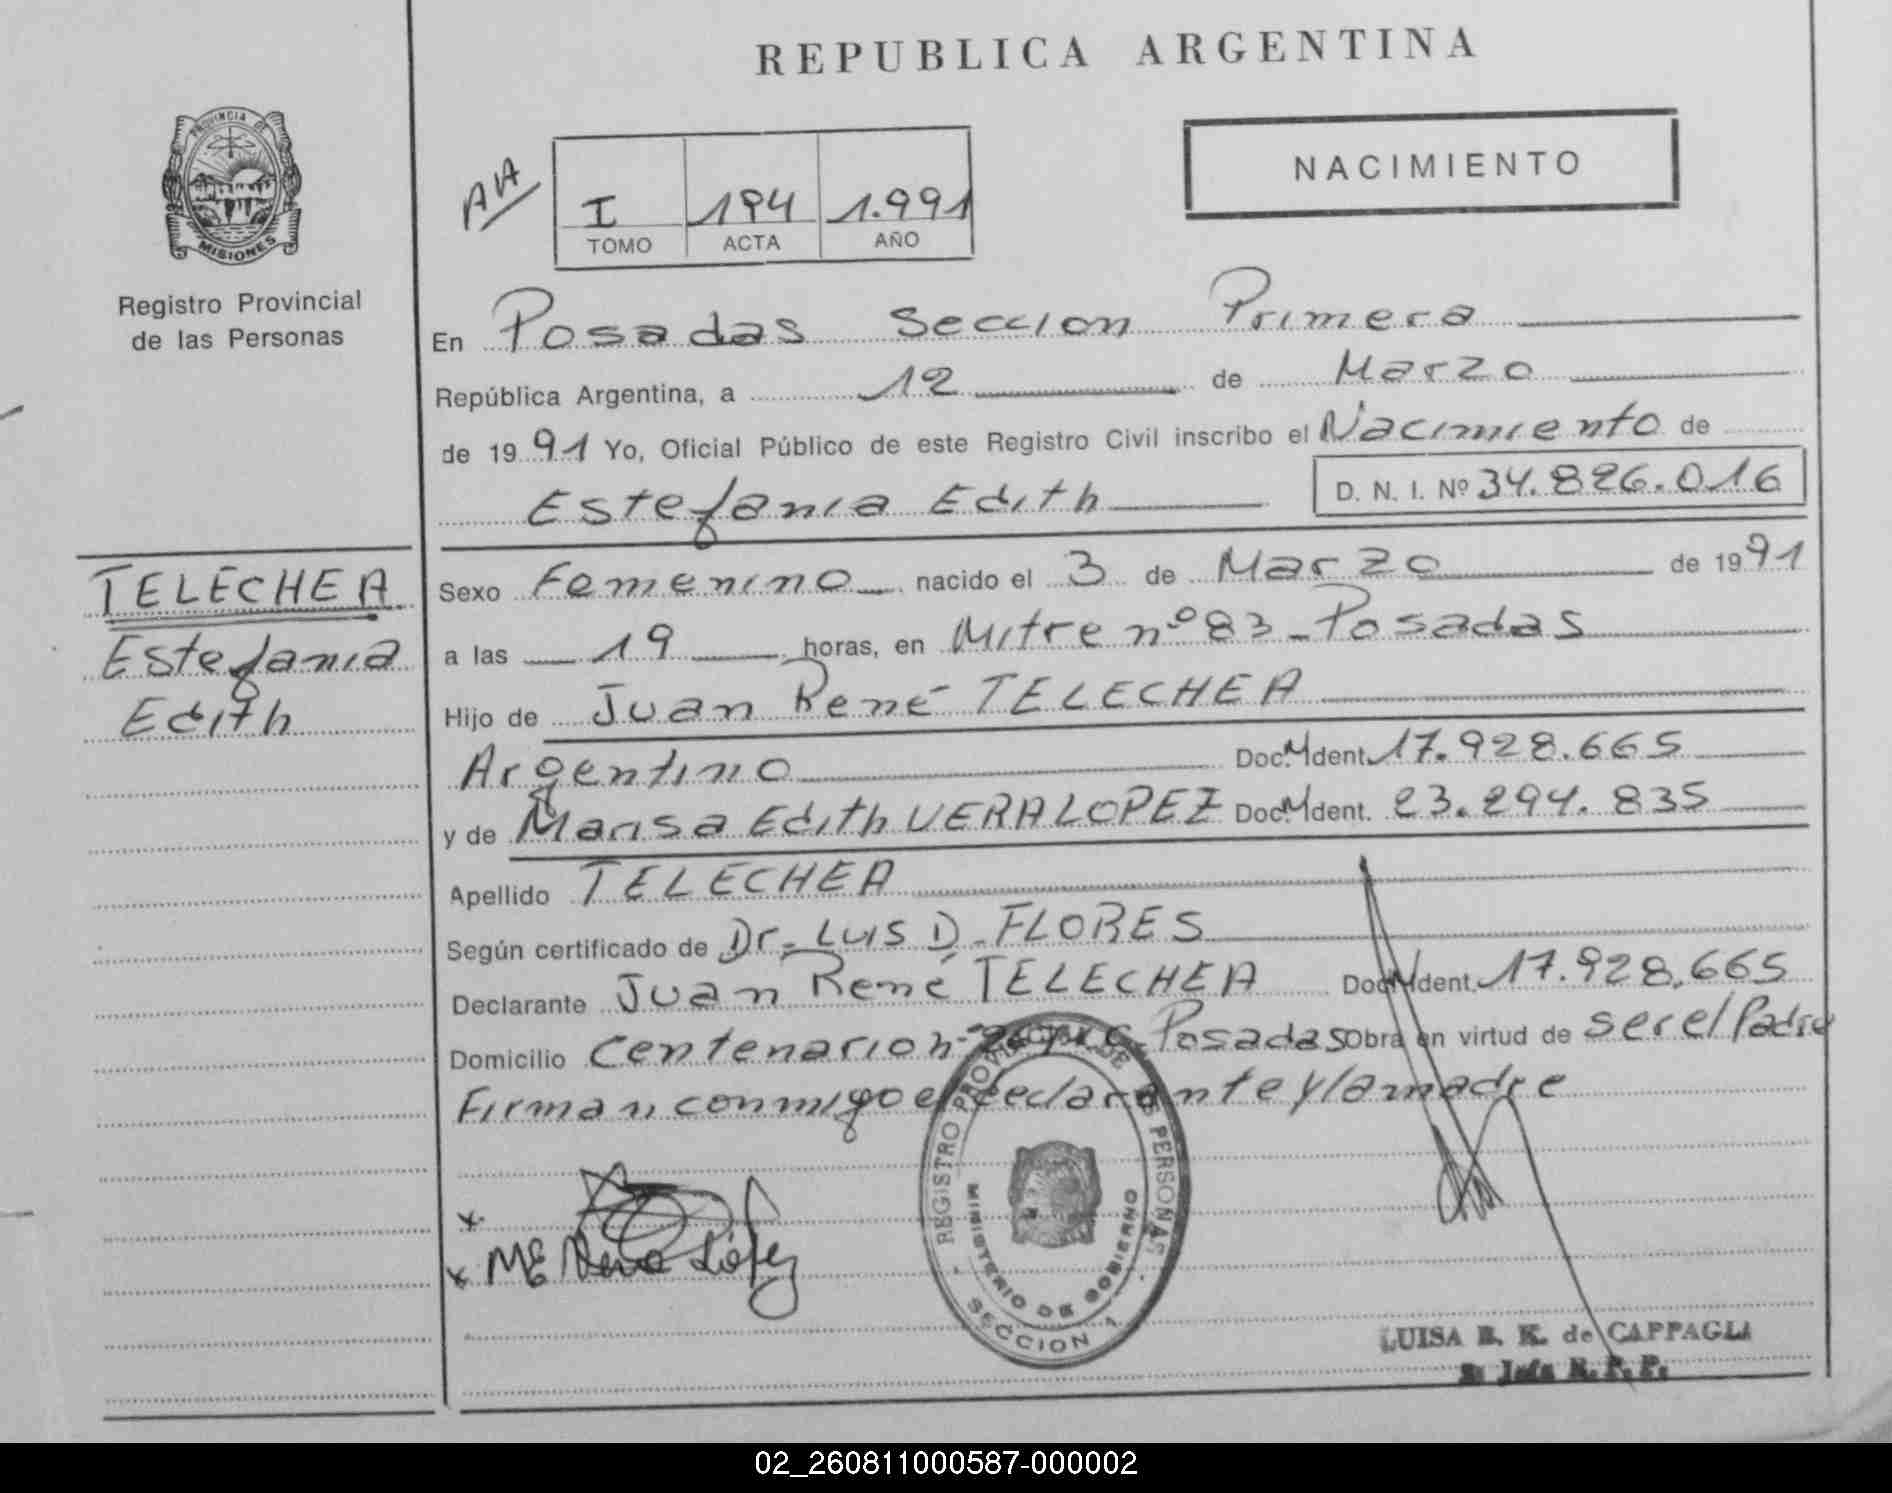 REPUBLICA ARGENTINA
PROVINCIA DE
MISIONES
Registro Provincial
de las Personas
NACIMIENTO
I 194 1.991
TOMO ACTA AÑO
En Posadas Seccion Primera
República Argentina, a 12 de Marzo
de 1991 Yo, Oficial Público de este Registro Civil inscribo el Nacimiento de
Estefania Edith D. N. I. Nº 34.826.016
TELECHEA
Estefania
Edith
Sexo Femenino nacido el 3 de Marzo de 1991
a las 19 horas, en Mitre nº 83 - Posadas
Hijo de Juan René TELECHEA
Argentino Doc. Ident. 17.928.665
y de Marisa Edith VERA LOPEZ Doc. Ident. 23.294.835
Apellido TELECHEA
Según certificado de Dr. Luis D. FLORES
Declarante Juan René TELECHEA Doc. Ident. 17.928.665
Domicilio Centenario nº Posadas Obra en virtud de ser el Padre
Firman conmigo el declarante y la madre
REGISTRO PROVINCIAL DE LAS PERSONAS
MINISTERIO DE GOBIERNO
SECCION 1
x
x ME Vera López
LUISA B. K. de CAPPAGLI
R. P. P.
02_260811000587-000002